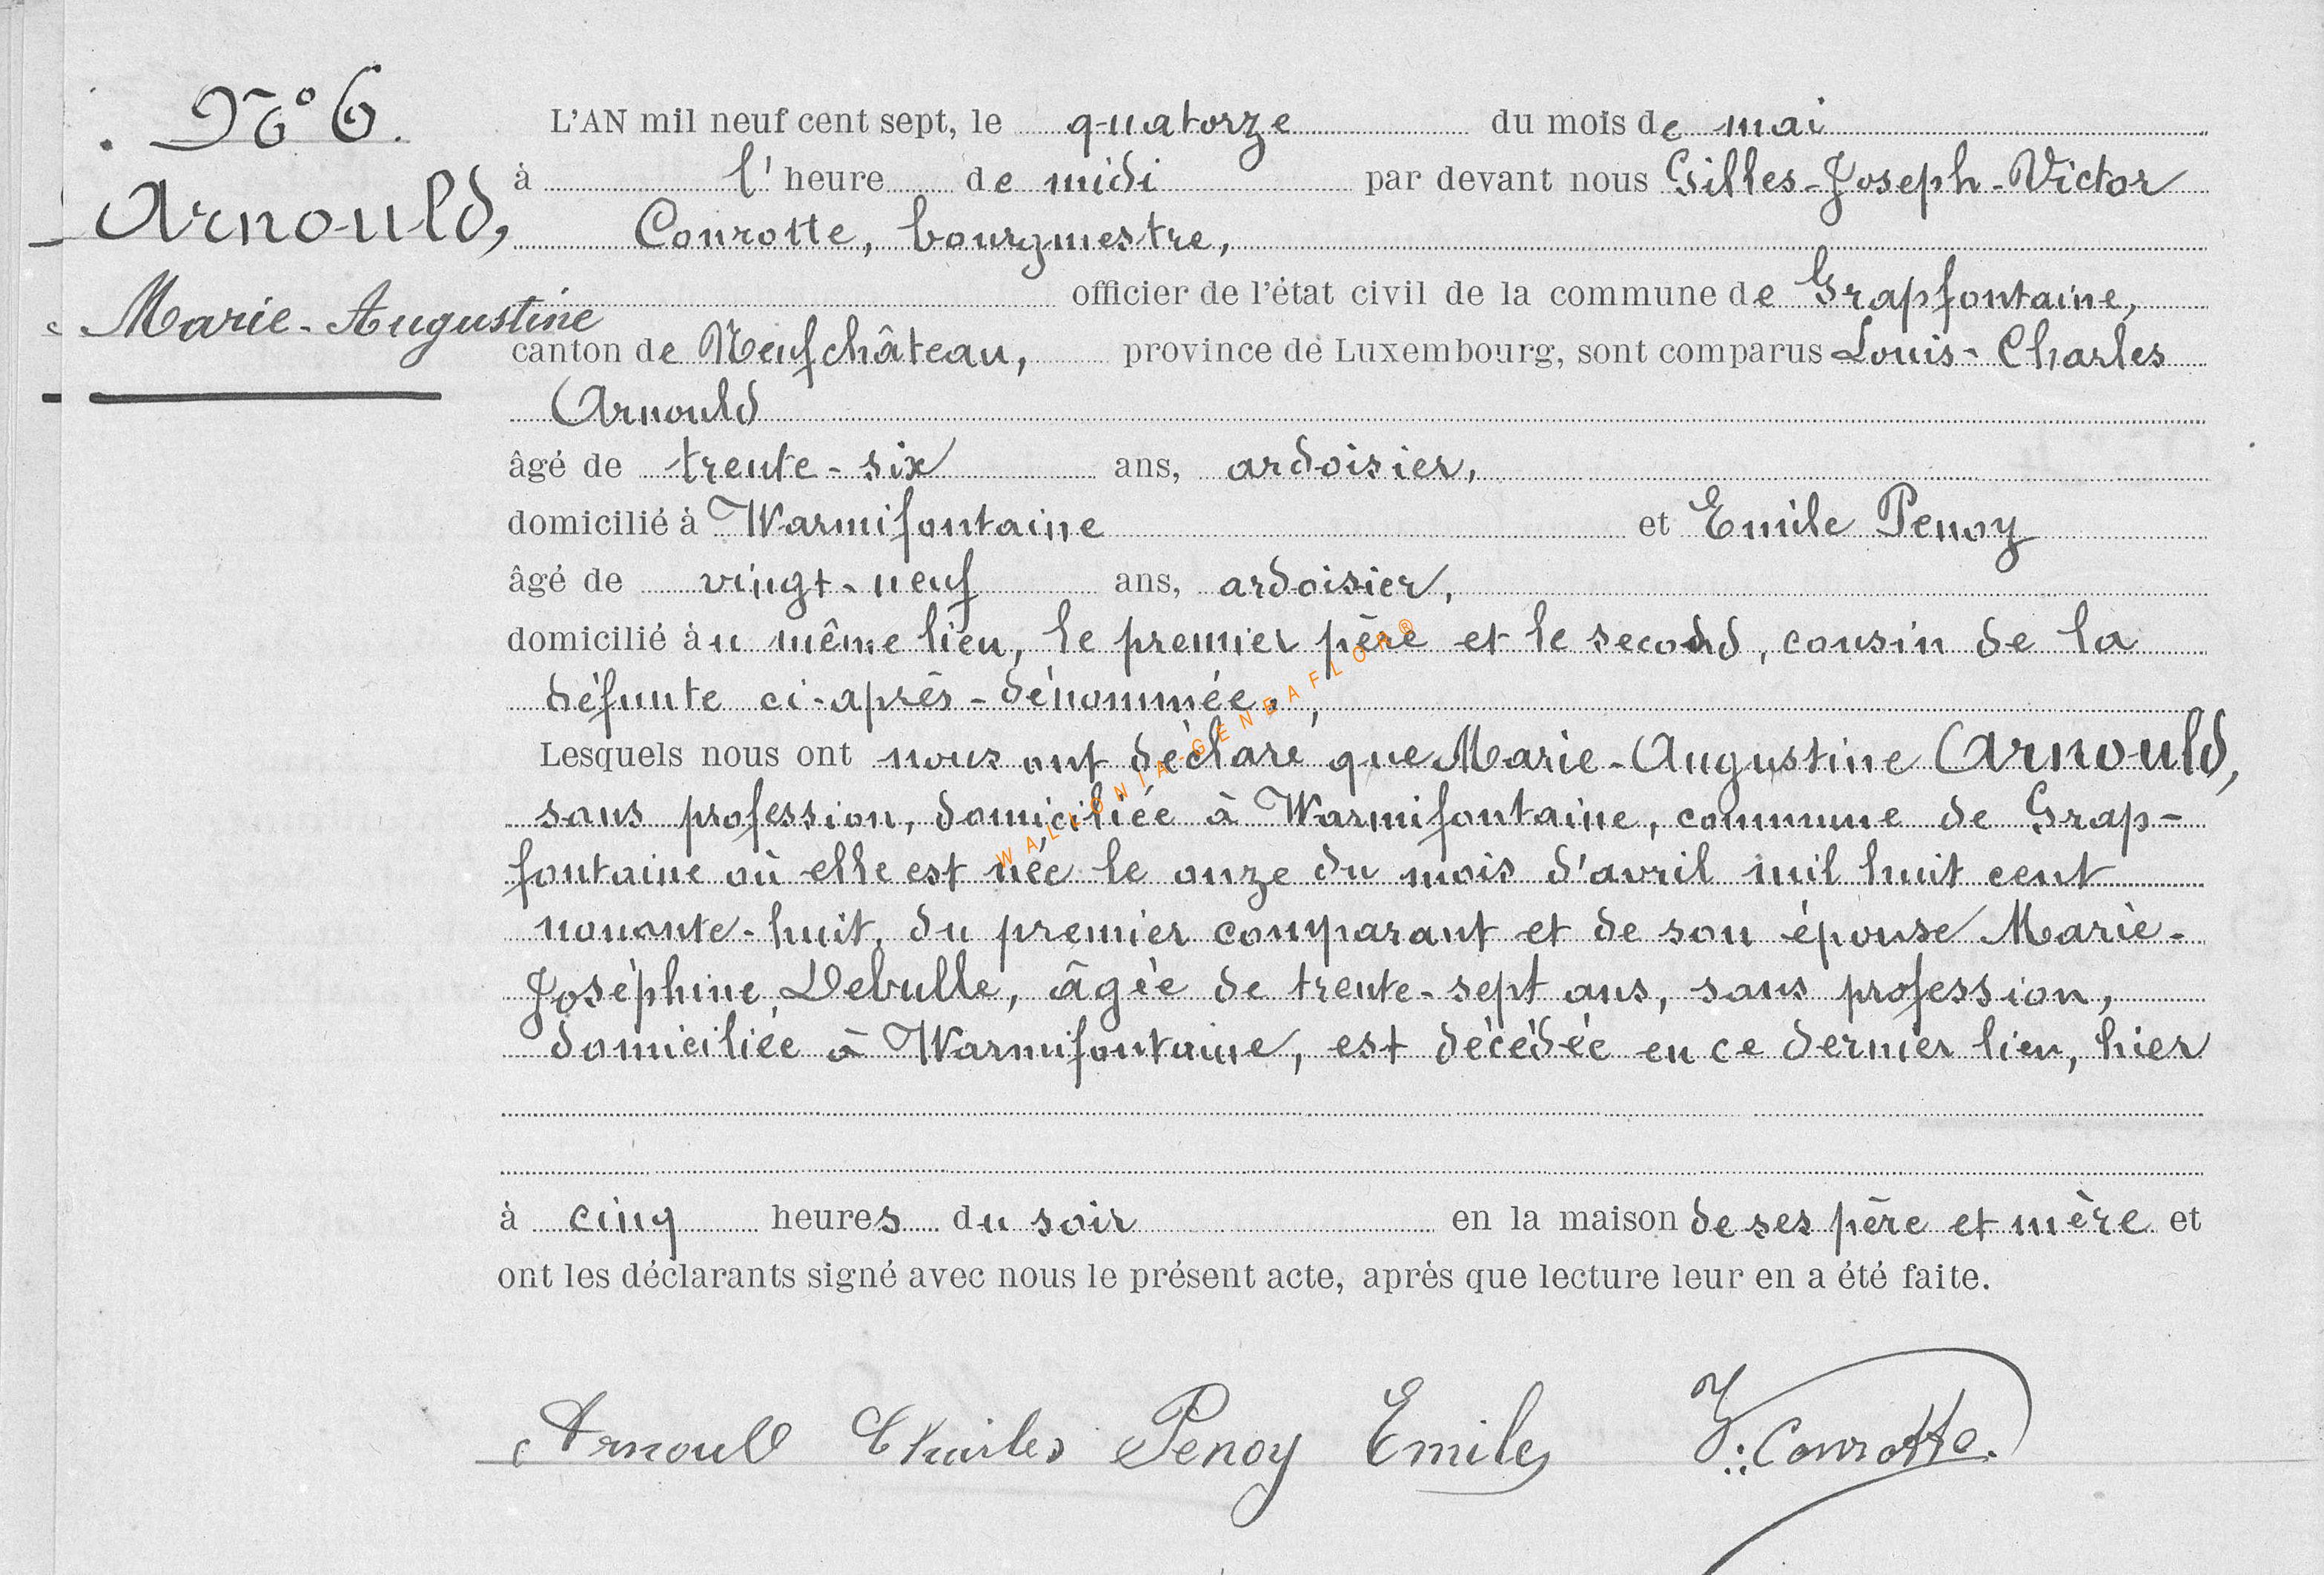 N° 6.
Arnould,
Marie-Augustine
L'AN mil neuf cent sept, le quatorze du mois de mai
à l'heure de midi par devant nous Gilles-Joseph-Victor
Conrotte, bourgmestre,
officier de l'état civil de la commune de Grapfontaine,
canton de Neufchâteau, province de Luxembourg, sont comparus Louis-Charles
Arnould
âgé de trente-six ans, ardoisier,
domicilié à Warmifontaine et Emile Penoy
âgé de vingt-neuf ans, ardoisier,
domicilié àu même lieu, le premier père et le second, cousin de la
défunte ci-après-dénommée,
Lesquels nous ont nous ont déclaré que Marie-Augustine Arnould,
sans profession, domiciliée à Warmifontaine, commune de Grap-
fontaine où elle est née le onze du mois d'avril mil huit cent
nonante-huit, du premier comparant et de son épouse Marie-
Joséphine Debulle, âgée de trente-sept ans, sans profession,
domiciliée à Warmifontaine, est décédée en ce dernier lieu, hier
à cinq heures du soir en la maison de ses père et mère et
ont les déclarants signé avec nous le présent acte, après que lecture leur en a été faite.
Arnould Charles Penoy Emile V. Conrotte.
WALLONIA-GENEAFLOR®